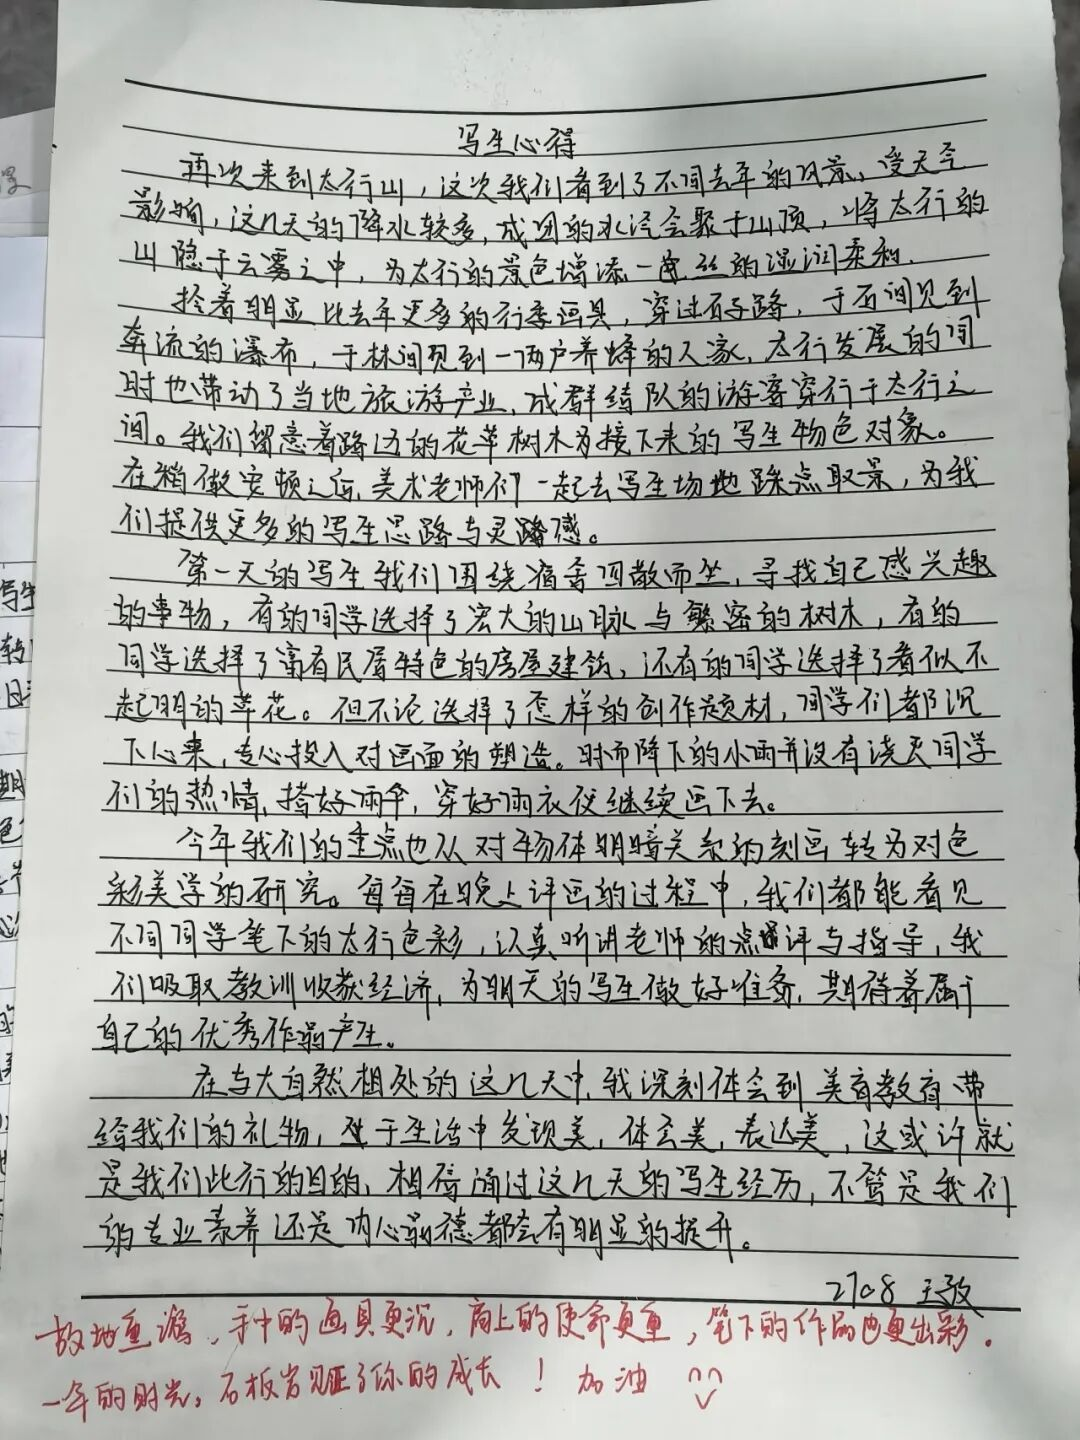 写生心得
再次来到太行山，这次我们看到了不同去年的风景、受天气
影响，这几天的降水较多，成团的水汽会聚于山顶，将太行的
山隐于云雾之中，为太行的景色增添一丝丝的湿润柔和.
拎着明显比去年更多的行李画具，穿过石子路，于石涧见到
奔流的瀑布，于林间见到一两户养蜂的人家，太行发展的同
时也带动了当地旅游产业，成群结队的游客穿行于太行之
间。我们留意着路边的花草树木为接下来的写生物色对象。
在稍做安顿之后，美术老师们一起去写生场地踩点取景，为我
们提供更多的写生思路与灵感。
第一天的写生我们围绕宿舍四散而坐，寻找自己感兴趣
的事物，有的同学选择了宏大的山脉与繁密的树木，有的
同学选择了富有民居特色的房屋建筑，还有的同学选择了看似不
起眼的草花。但不论选择了怎样的创作题材，同学们都沉
下心来，专心投入对画面的塑造。时而降下的小雨并没有浇灭同学
们的热情，搭好雨伞，穿好雨衣仅继续画下去。
今年我们的重点也从对物体明暗关系的刻画转为对色
彩美学的研究。每每在晚上评画的过程中，我们都能看见
不同同学笔下的太行色彩，认真听讲老师的点评与指导，我
们吸取教训收获经济，为明天的写生做好准备，期待着属于
自己的优秀作品产生。
在与大自然相处的这几天中，我深刻体会到美育教育带
给我们的礼物，于生活中发现美，体会美，表达美，这或许就
是我们此行的目的，相信通过这几天的写生经历，不管是我们
的专业素养还是内心品德都会有明显的提升。
2708 王敬
故地重游，手中的画具更沉，肩上的使命更重，笔下的作品也更出彩。
一年的时光，石板岩见证了你的成长！加油